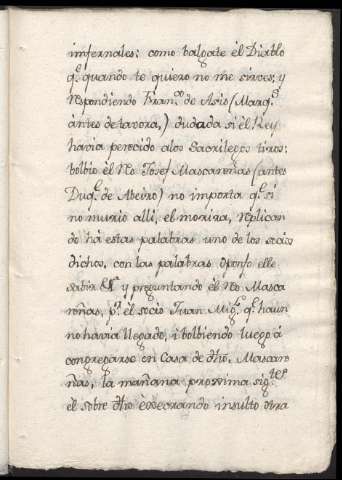 infernales: como balgate el Diablo
q.e quando te quiero no me sirves; y
respondiendo Fran.co de Asis (Marq.s
antes de tavora,) dudada si el Rey
havia perecido alos Sacrilegos tiros:
bolbio el R.o Josef Mascareñas (antes
Duq.e de Abeiro) no importa q.e si
no murio alli, el morira, replican
do há estas palabras uno de los socios
dichos, con las palabras
sabir y preguntando el R.o Masca
reñas, p.r el socio Juan Mig.l q.e haun
no havia llegado, i bolbiendo luego á
congregarse en Casa de dho, Mascare
ñas, la mañana proxima sig.te
el sobre dho execrando insulto otra